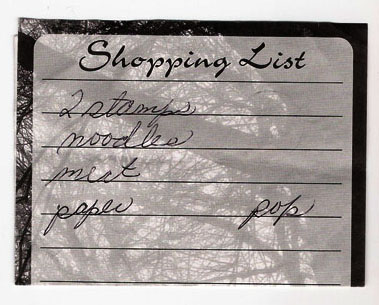 Shopping List
2 stamps
noodles
meat
paper pop